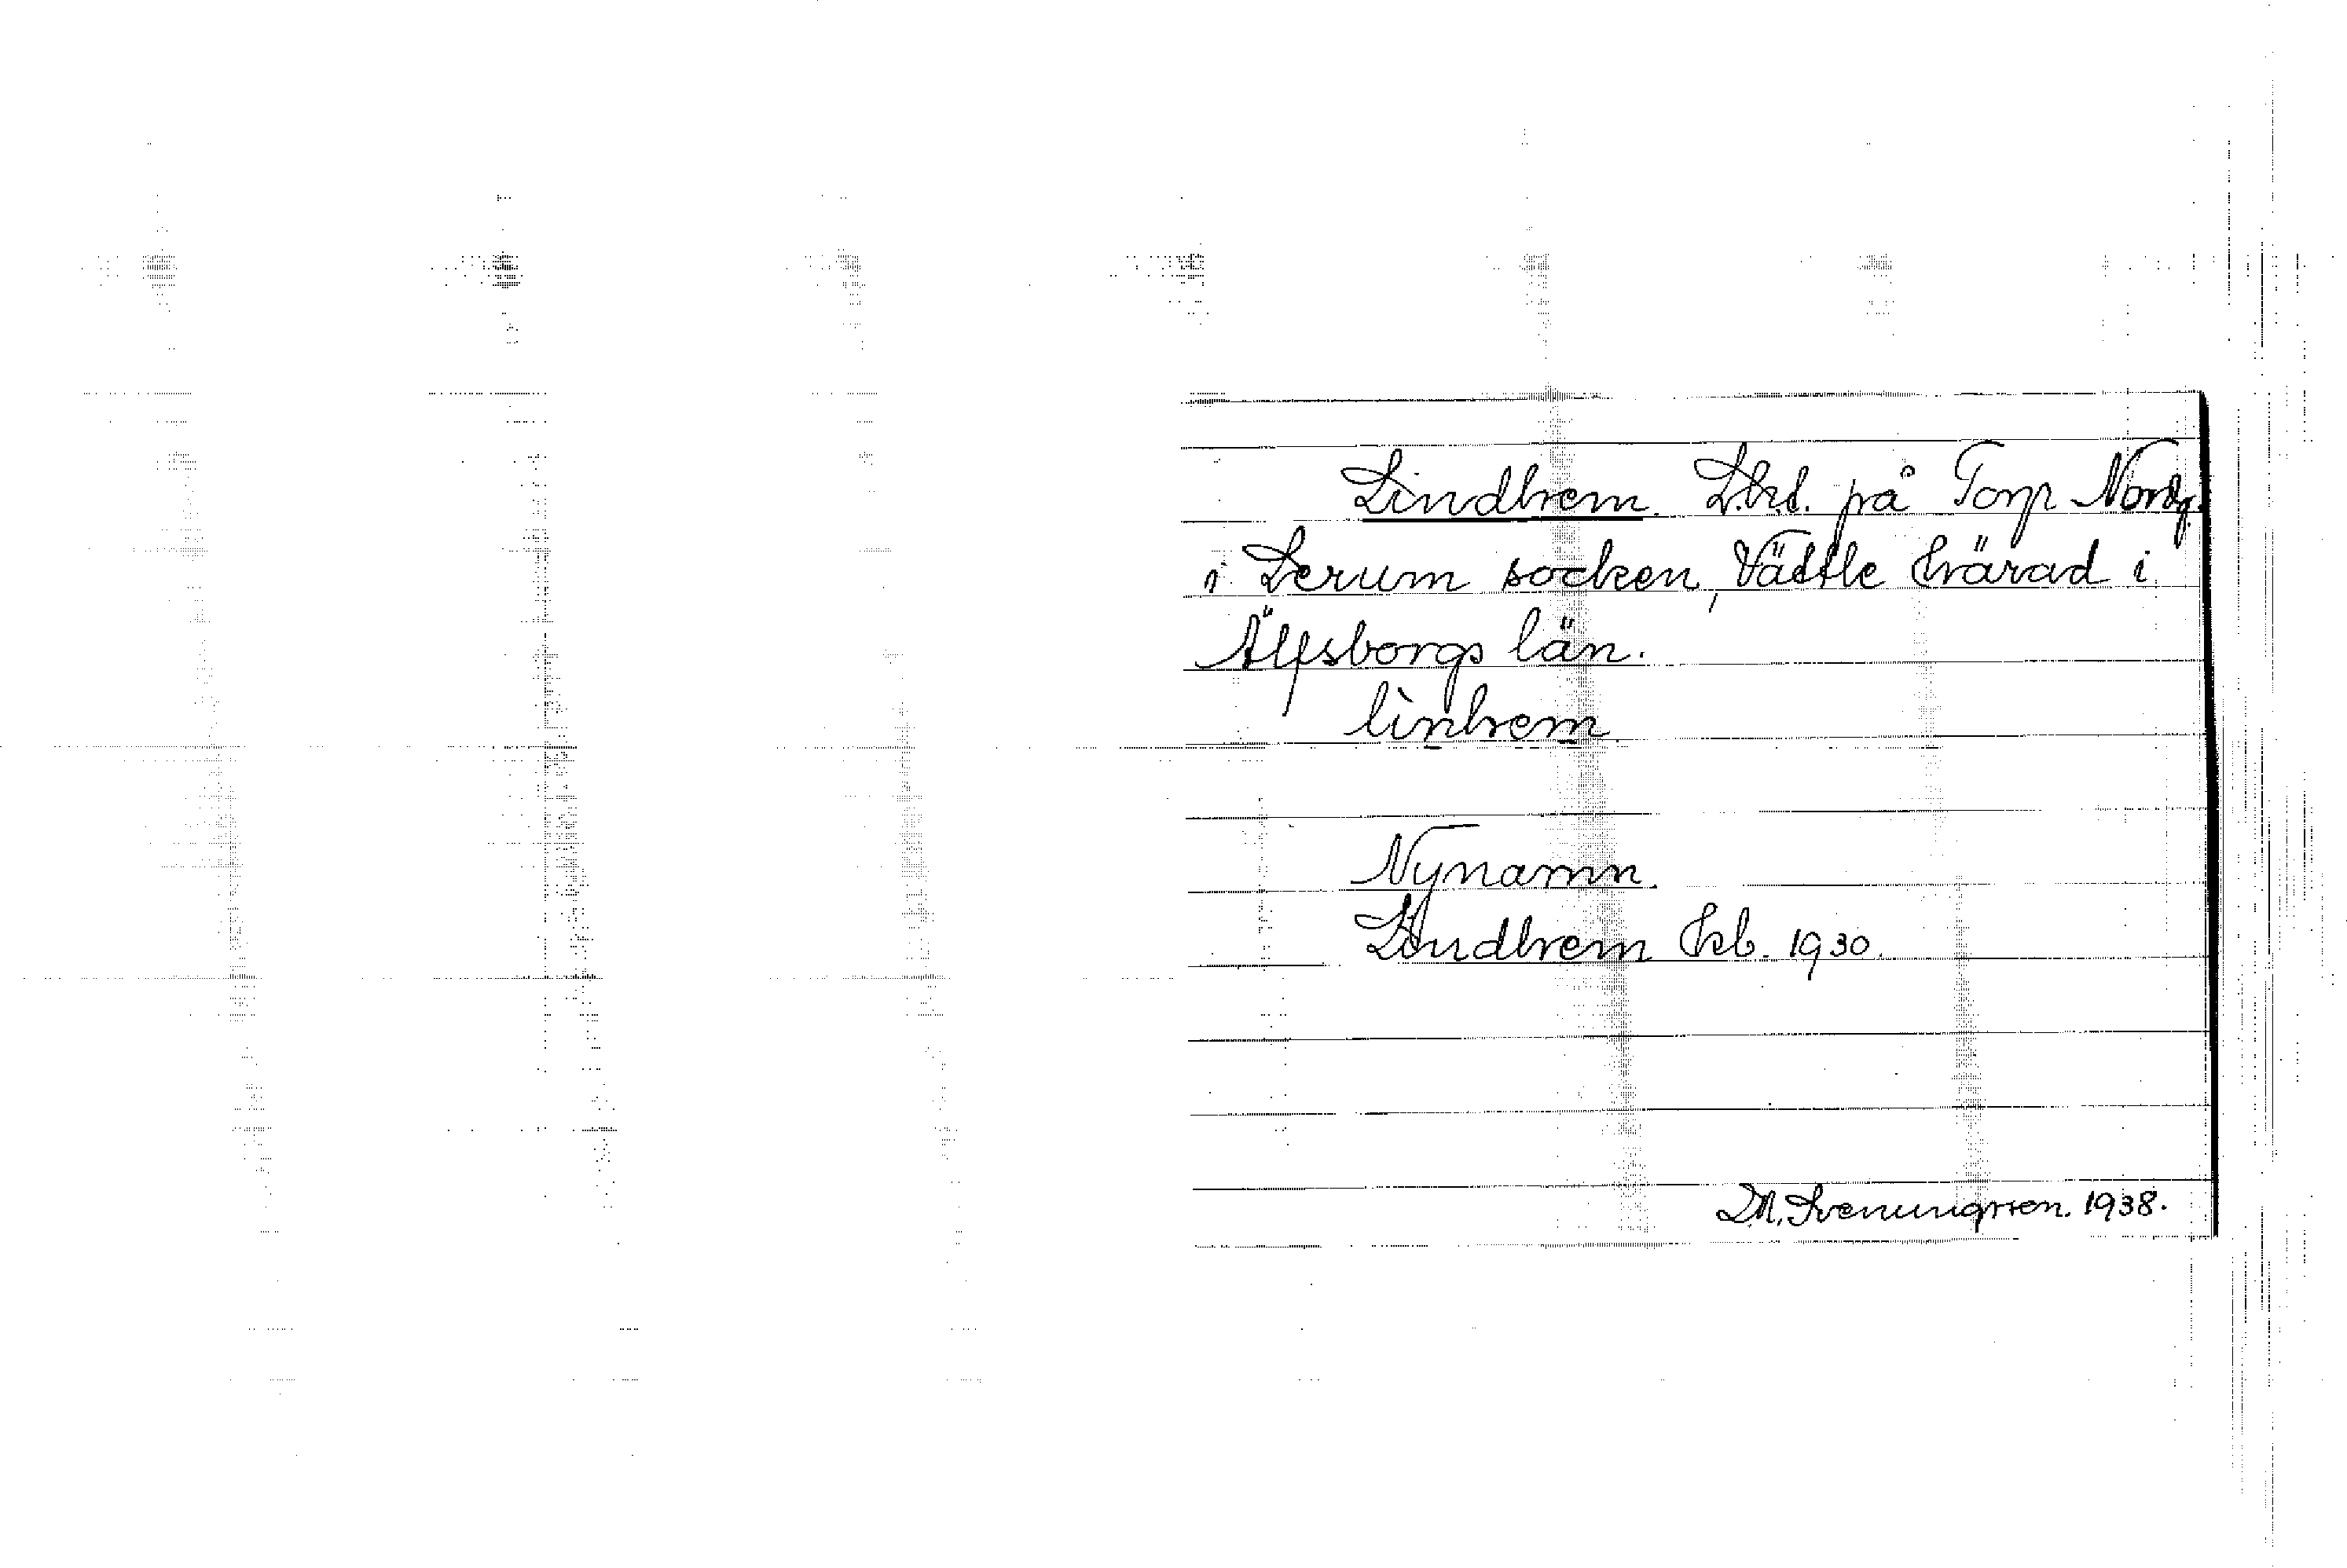 Lindhem. L.h.l. på Torp Nordg.
i Lerum socken, Vättle härad i
Älfsborgs län.
lìnhem
Nynamn.
Lindhem hb. 1930.
D.N. Svenungsson. 1938.